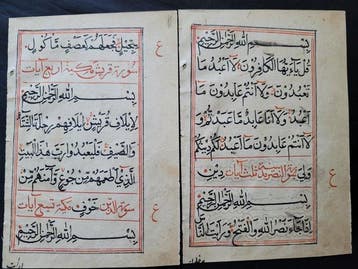 ع
بِسْمِ اللهِ الرَّحْمٰنِ الرَّحِيمِ
قُلْ يَا أَيُّهَا الْكَافِرُونَ لَا أَعْبُدُ مَا
تَعْبُدُونَ وَلَا أَنْتُمْ عَابِدُونَ مَا
أَعْبُدُ وَلَا أَنَا عَابِدٌ مَا عَبَدْتُمْ وَلَا
أَنْتُمْ عَابِدُونَ مَا أَعْبُدُ لَكُمْ دِينُكُمْ
وَلِيَ سورة النصر ثلث آيات دِينِ
ع
بِسْمِ اللهِ الرَّحْمٰنِ الرَّحِيمِ
إِذَا جَاءَ نَصْرُ اللهِ وَالْفَتْحُ وَرَأَيْتَ النَّاسَ
سِجِّيلٍ فَجَعَلَهُمْ كَعَصْفٍ مَأْكُولٍ
ع
سورة قريش مكية اربع آيات
بِسْمِ اللهِ الرَّحْمٰنِ الرَّحِيمِ
لِإِيلَافِ قُرَيْشٍ إِيلَافِهِمْ رِحْلَةَ الشِّتَاءِ
وَالصَّيْفِ فَلْيَعْبُدُوا رَبَّ هٰذَا الْبَيْتِ
الَّذِي أَطْعَمَهُمْ مِنْ جُوعٍ وَآمَنَهُمْ مِنْ
سورة الدين خَوْفٍ مكية سبع آيات
ع
بِسْمِ اللهِ الرَّحْمٰنِ الرَّحِيمِ
ارأيت